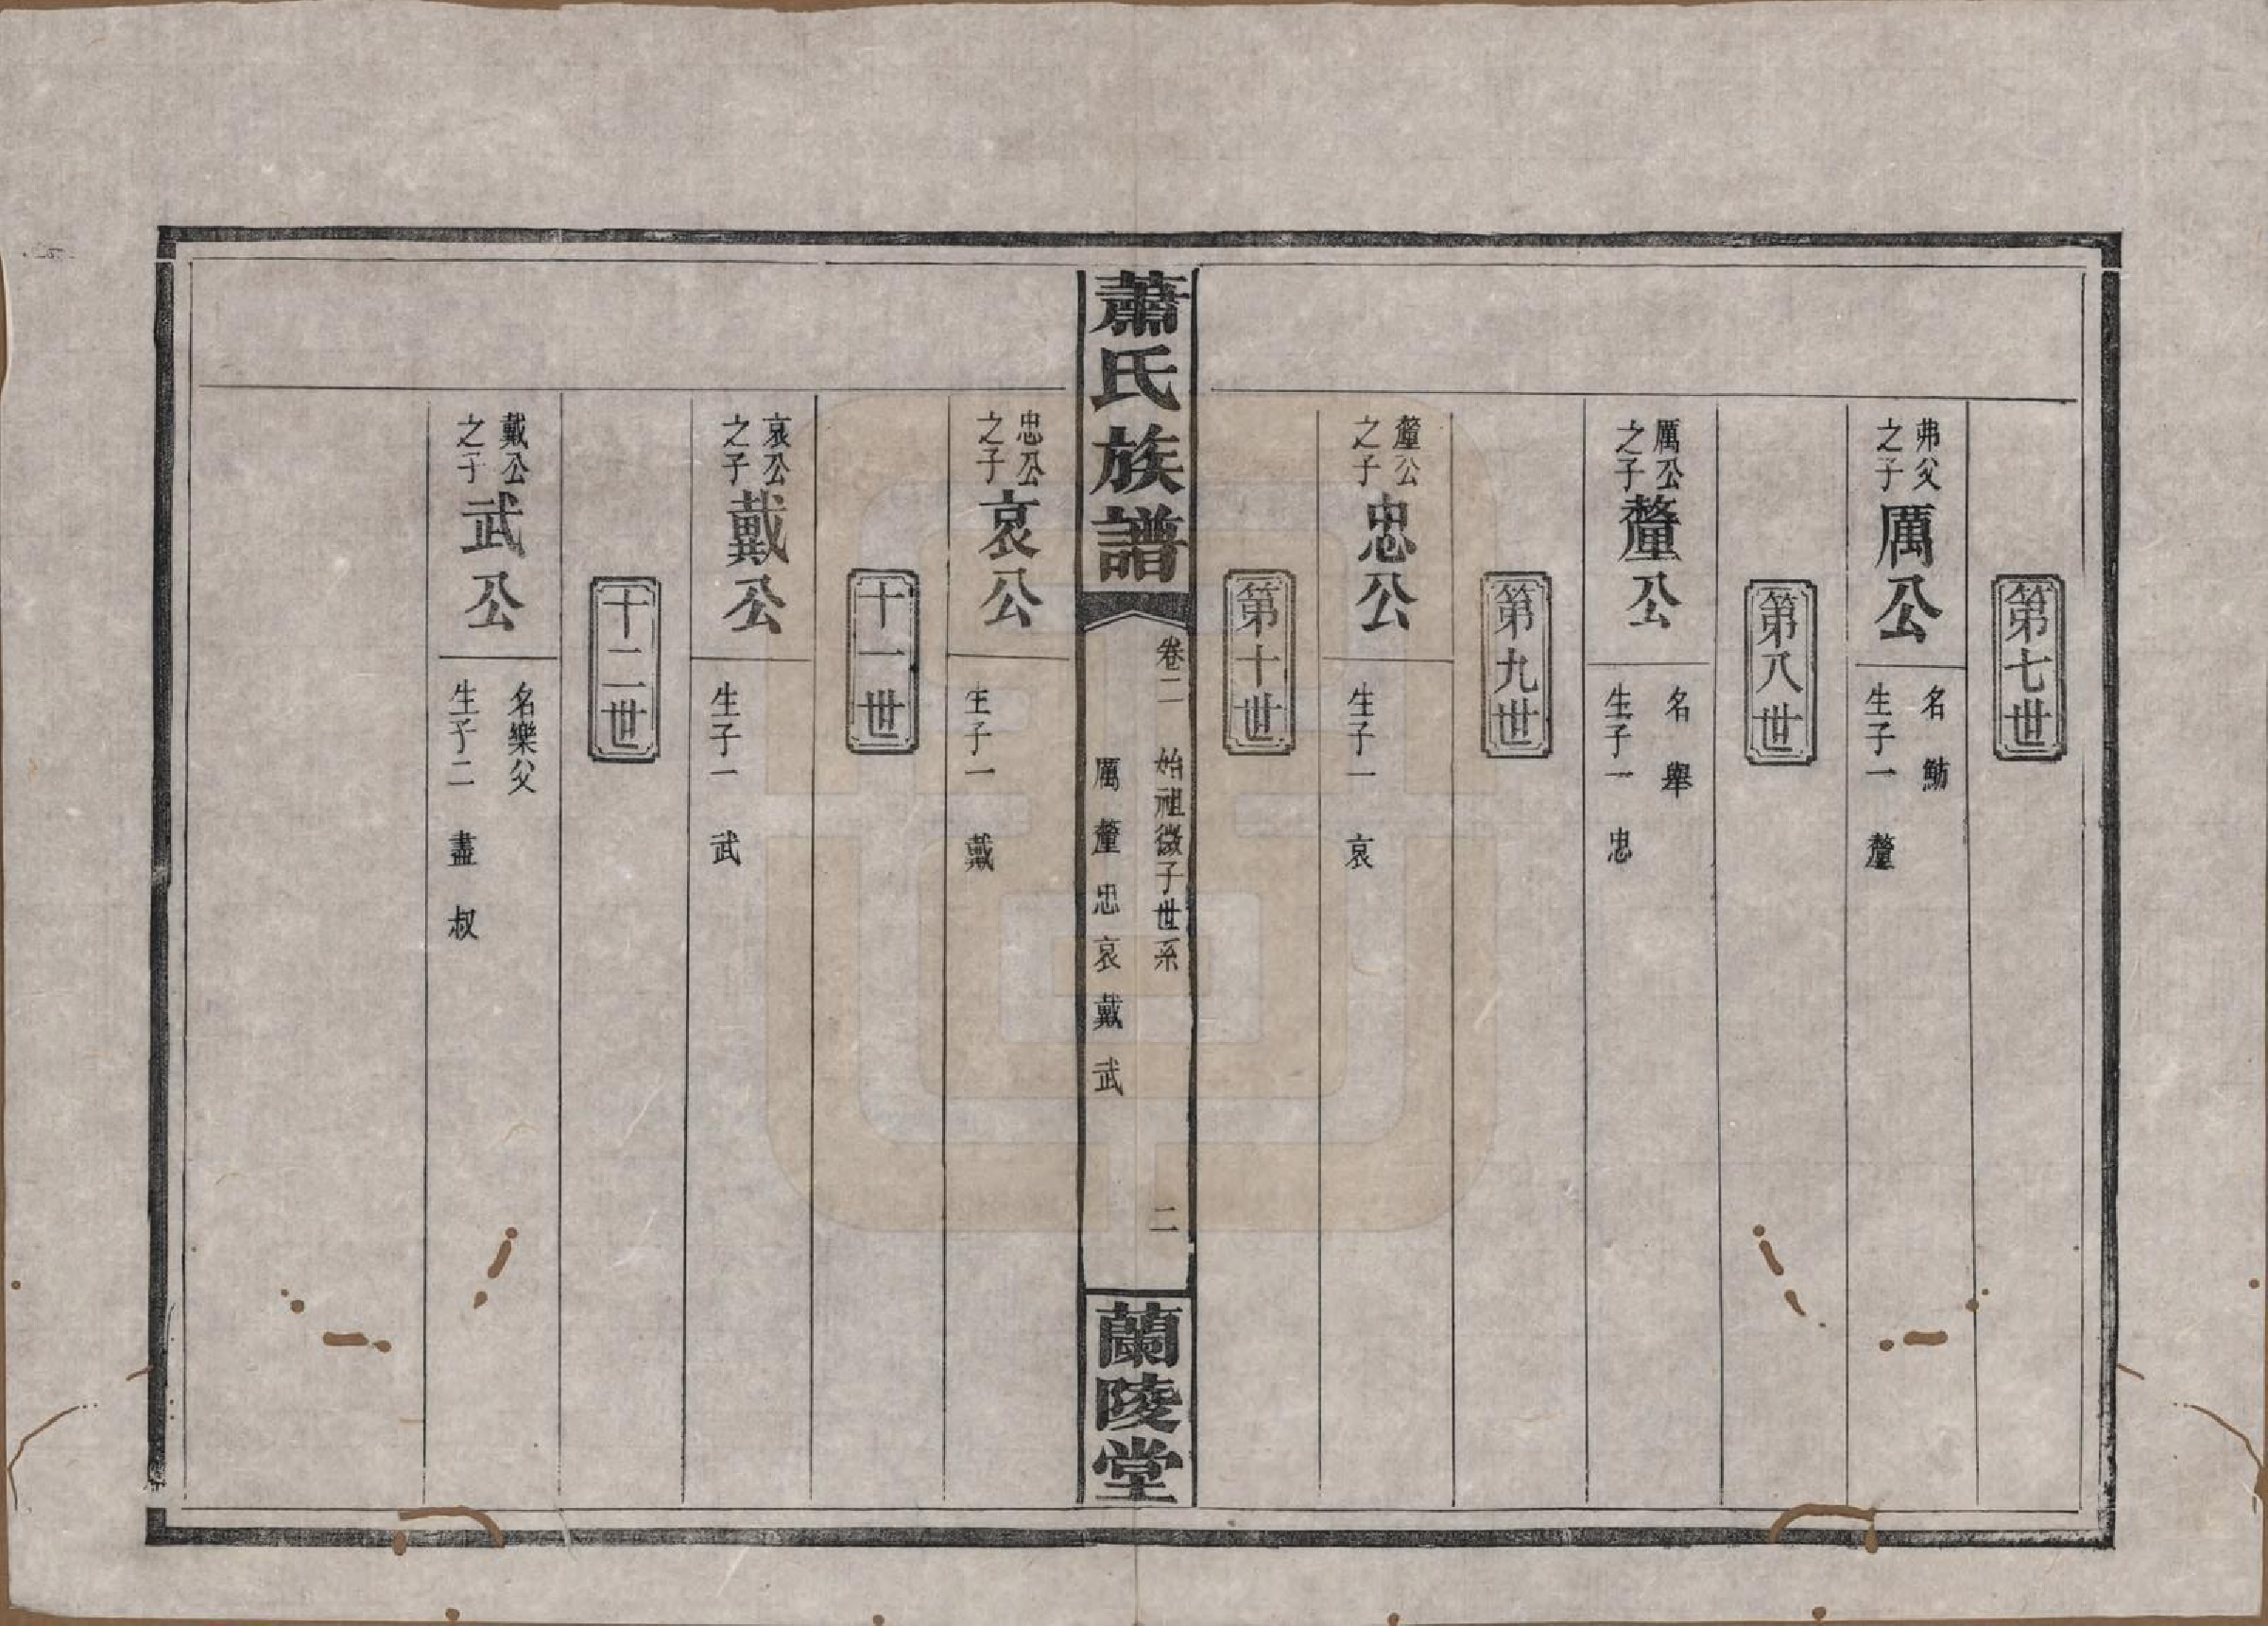 第七世
弗父之子
厲公
名鮒
生子一 釐
第八世
厲公之子
釐公
名舉
生子一 忠
第九世
釐公之子
忠公
生子一 哀
第十世
蕭氏族譜
卷二 始祖微子世系
厲 釐 忠 哀 戴 武
二
蘭陵堂
忠公之子
哀公
生子一 戴
十一世
哀公之子
戴公
生子一 武
十二世
戴公之子
武公
名樂父
生子二 盡 叔